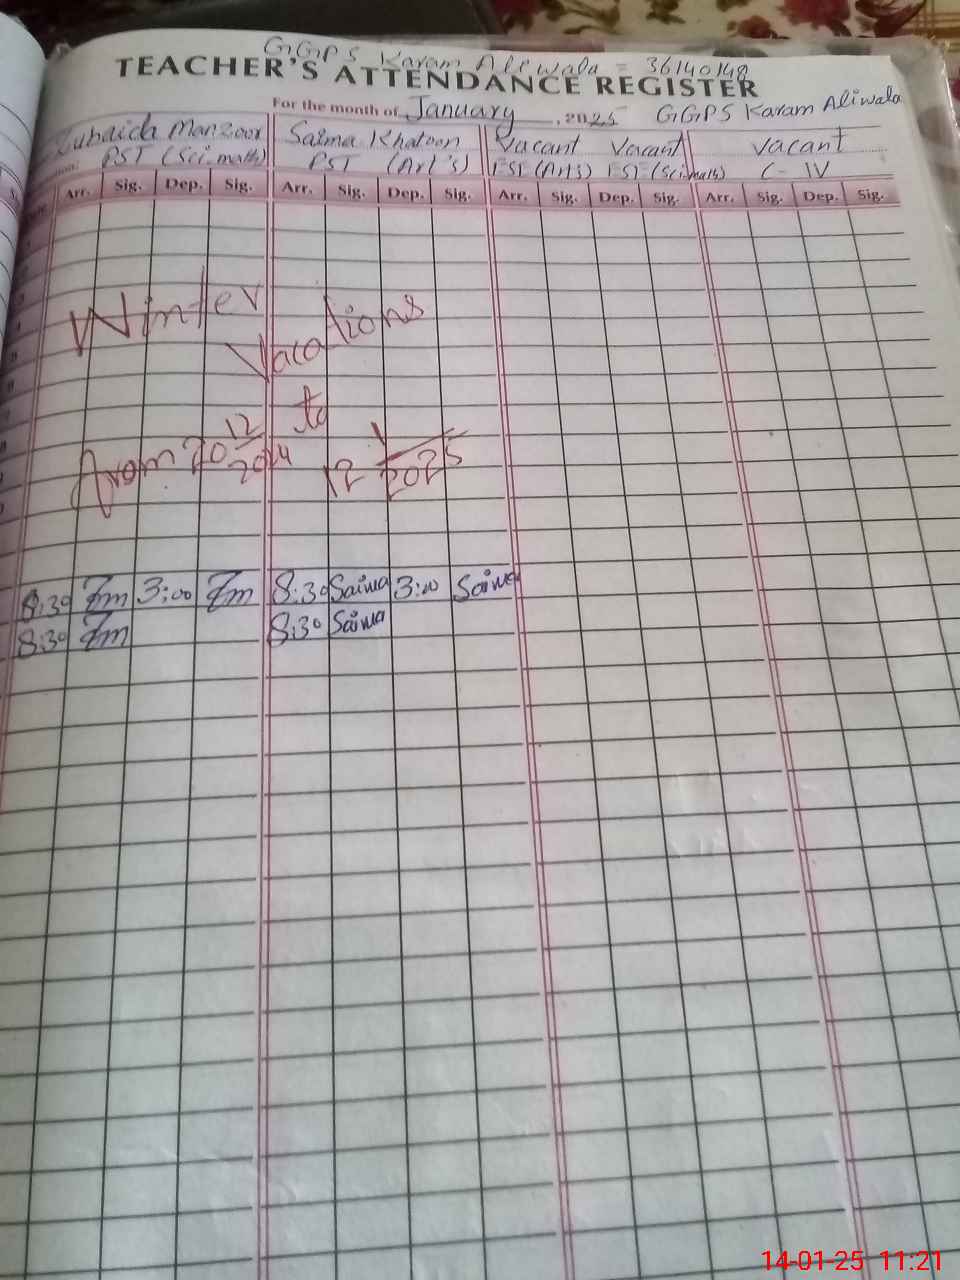 GGPS Karam Aliwala = 36140148
TEACHER'S ATTENDANCE REGISTER
For the month of January, 2025 GGPS Karam Aliwala
Zubaida Manzoor Saima Khatoon Vacant Vacant Vacant
PST (Sci.math) PST (Art's) EST (Arts) EST (Sci.math) C-IV
Arr. Sig. Dep. Sig. Arr. Sig. Dep. Sig. Arr. Sig. Dep. Sig. Arr. Sig. Dep. Sig.
Winter
Vacations
from 20 12/2024 to
12 1/2025
8:30 Zm 3:00 Zm 8:30 Saima 3:00 Saima
8:30 Zm 8:30 Saima
14-01-25 11:21